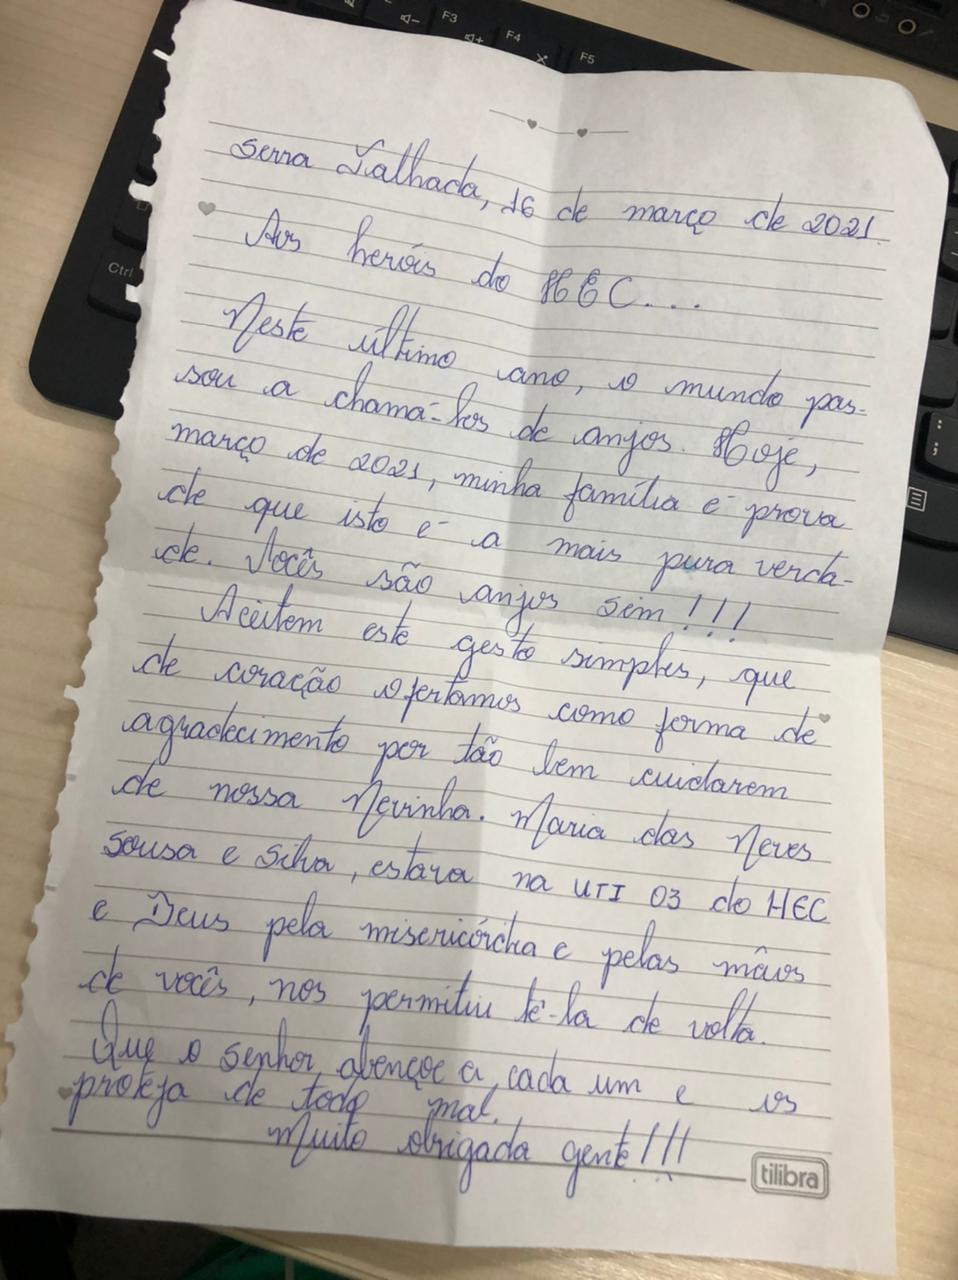 F3
F4
F5
Ctrl
Serra Talhada, 16 de março de 2021.
Aos heróis do HEC....
Neste último ano, o mundo pas-
sou a chamá-los de anjos. Hoje,
março de 2021, minha família é prova
de que isto é a mais pura verda-
de. Vocês são anjos sim!!!
Aceitem este gesto simples, que
de coração ofertamos como forma de
agradecimento por tão bem cuidarem
de nossa Nevinha. Maria das Neves
Sousa e Silva, estava na UTI 03 do HEC
e Deus pela misericórdia e pelas mãos
de vocês, nos permitiu tê-la de volta.
Que o Senhor abençoe a cada um e os
proteja de todo mal.
Muito obrigada gente!!!
tilibra